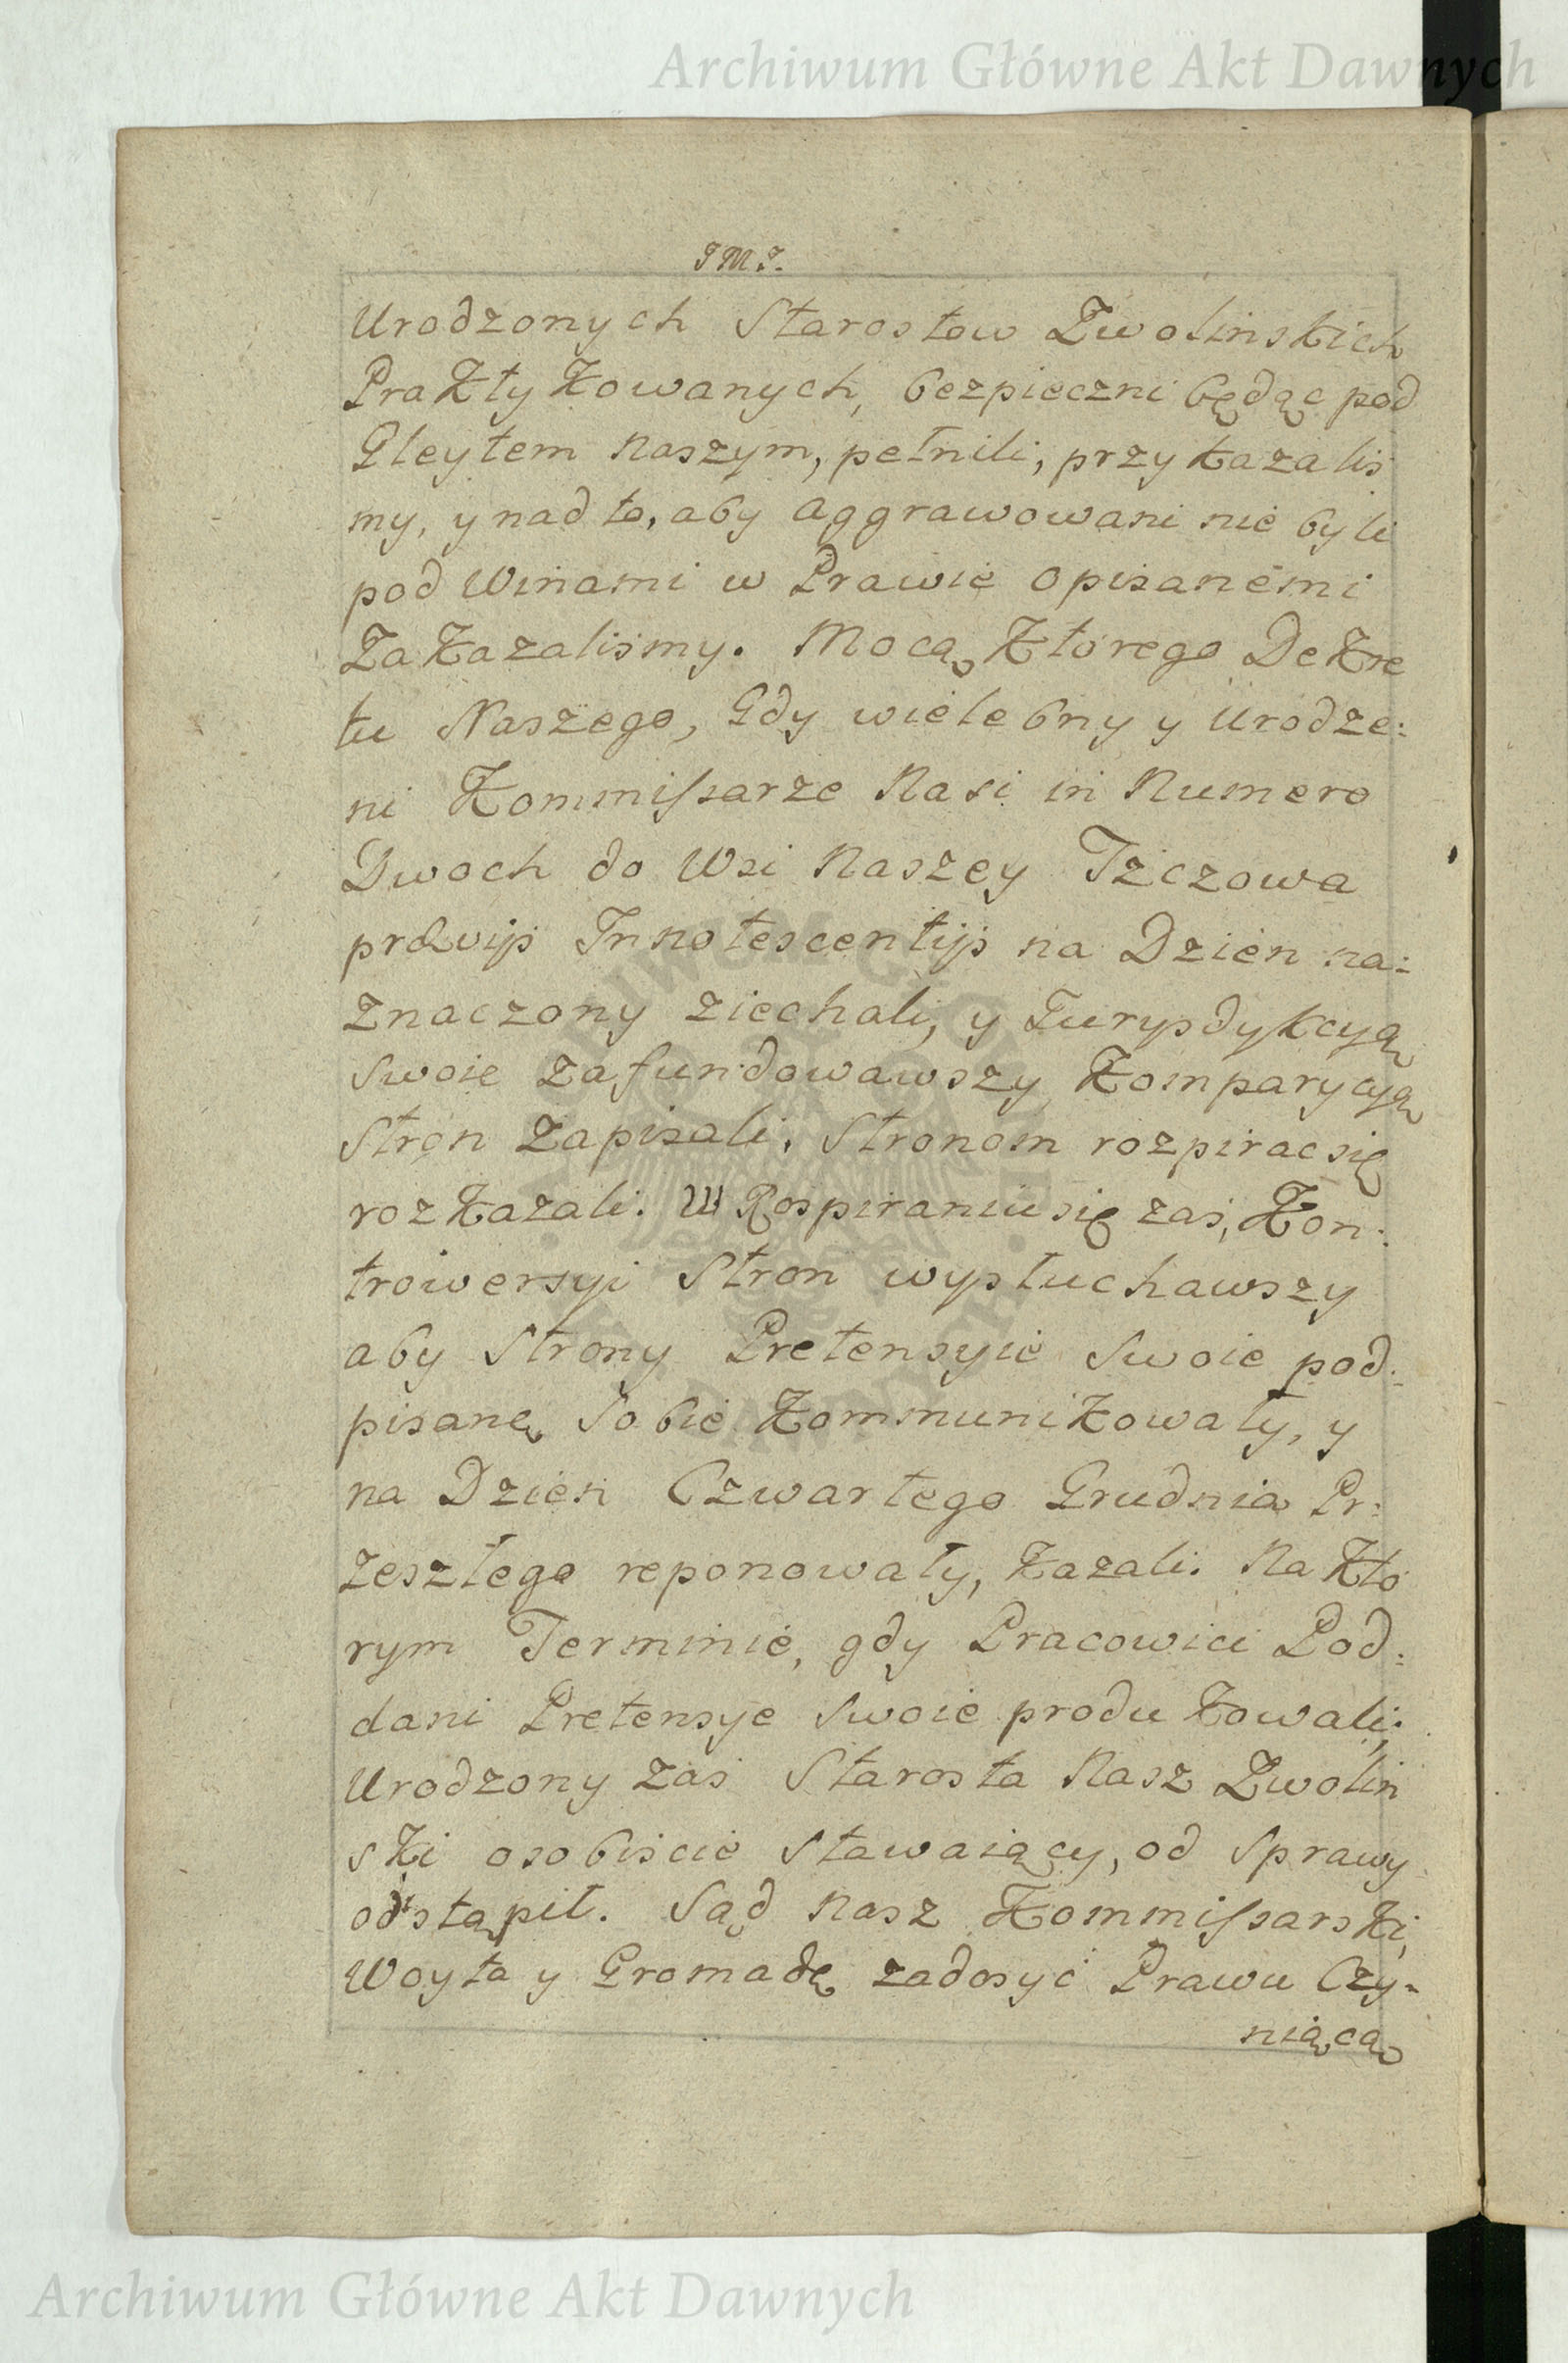 Archiwum Główne Akt Dawnych
J M J.
Urodzonych Starostow Zwolinskich
Praktykowanych, bezpieczni będąc pod
Gleytem Naszym, pełnili, przykazalis
my, y nad to, aby aggrawowani nie byli
pod Winami w Prawie opisanemi
Zakazalismy. Mocą Ktorego Dekre
tu Naszego, Gdy wielebny y Urodze:
ni Kommissarze Nasi in Numero
Dwoch do Wsi Naszey Tżczowa
prævijs Innotescentijs na Dzien na:
znaczony ziechali, y Jurysdykcyą
Swoie zafundowawszy, Komparycyą
Stron Zapisali. Stronom rozpirac się
rozkazali. W Rospiraniu się zas, Kon:
trowersyi Stron wysłuchawszy
aby Strony Pretensyie Swoie pod:
pisanę Sobie Kommunikowały, y
na Dzien Czwartego Grudnia Pr:
zeszłego reponowały, kazali. Na Kto
rym Terminie, gdy Pracowici Pod:
dani Pretensye Swoie produkowali;
Urodzony zas Starosta Nasz Zwolin
ski osobiscie Stawaiący, od Sprawy
odstąpił. Sąd Nasz Kommissarski,
Woyta y Gromadę zadosyć Prawu Czy-
niącą
Archiwum Główne Akt Dawnych